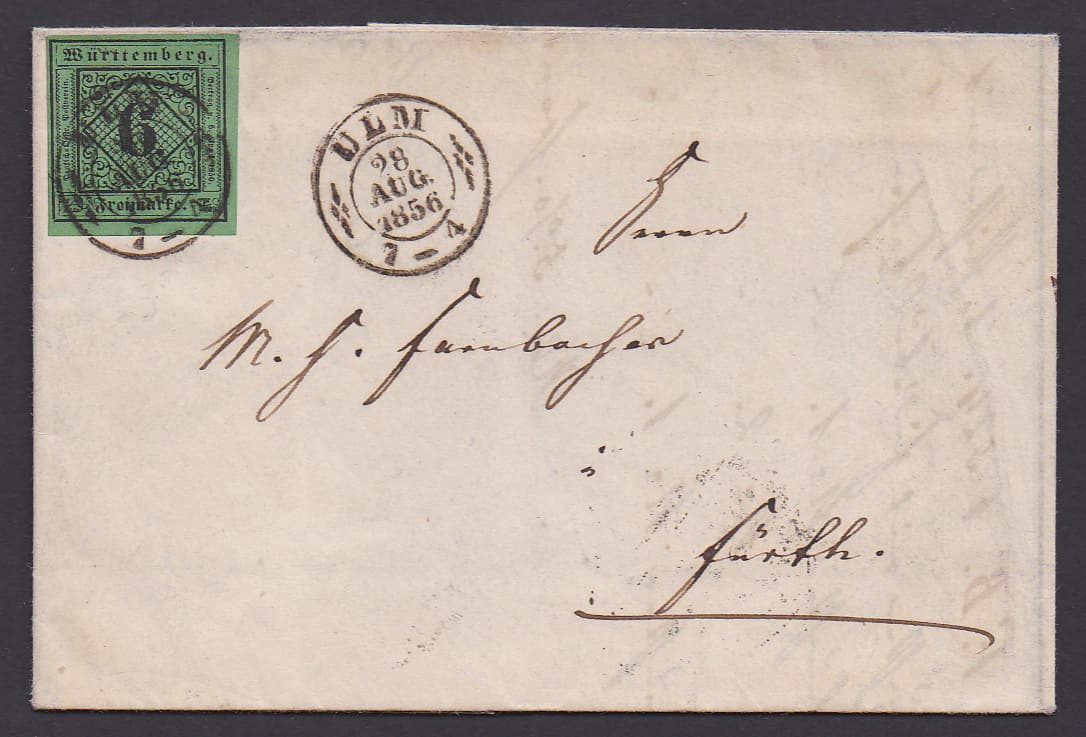 Württemberg.
6
Freimarke.
7 —
ULM
28
AUG.
1856
7 — 4
Herrn
M. H. Farnbacher
i
Fürth.